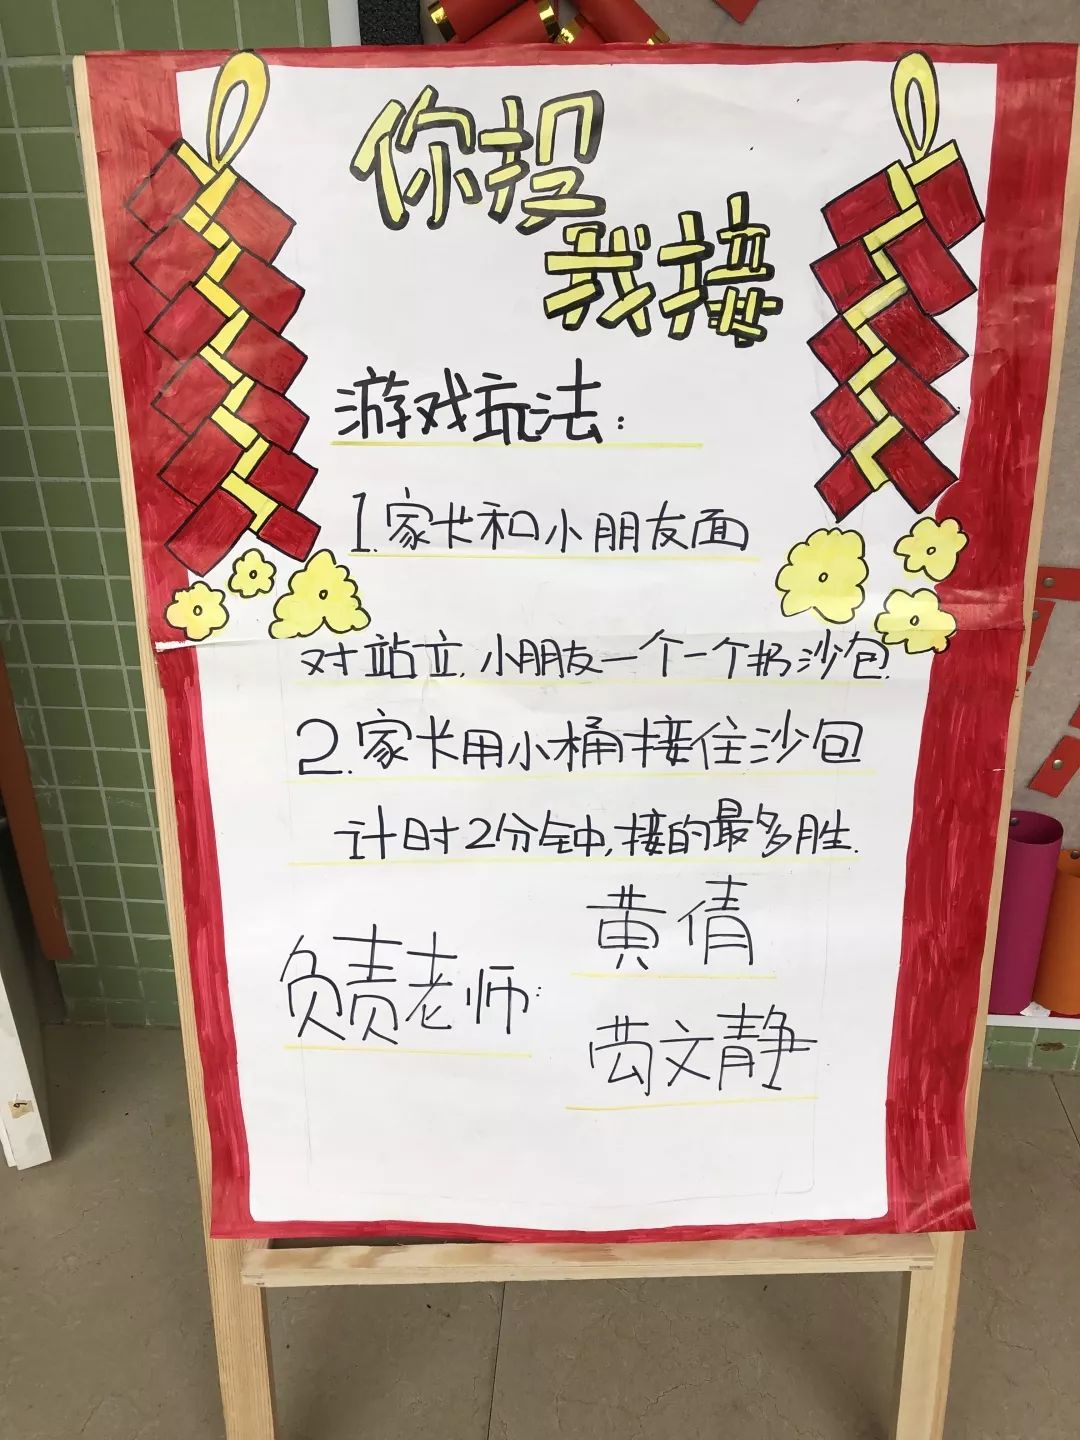 你投
我接
游戏玩法:
1.家长和小朋友面
对站立,小朋友一个一个扔沙包.
2.家长用小桶接住沙包
计时2分钟,接的最多胜.
负责老师:
黄倩
文静